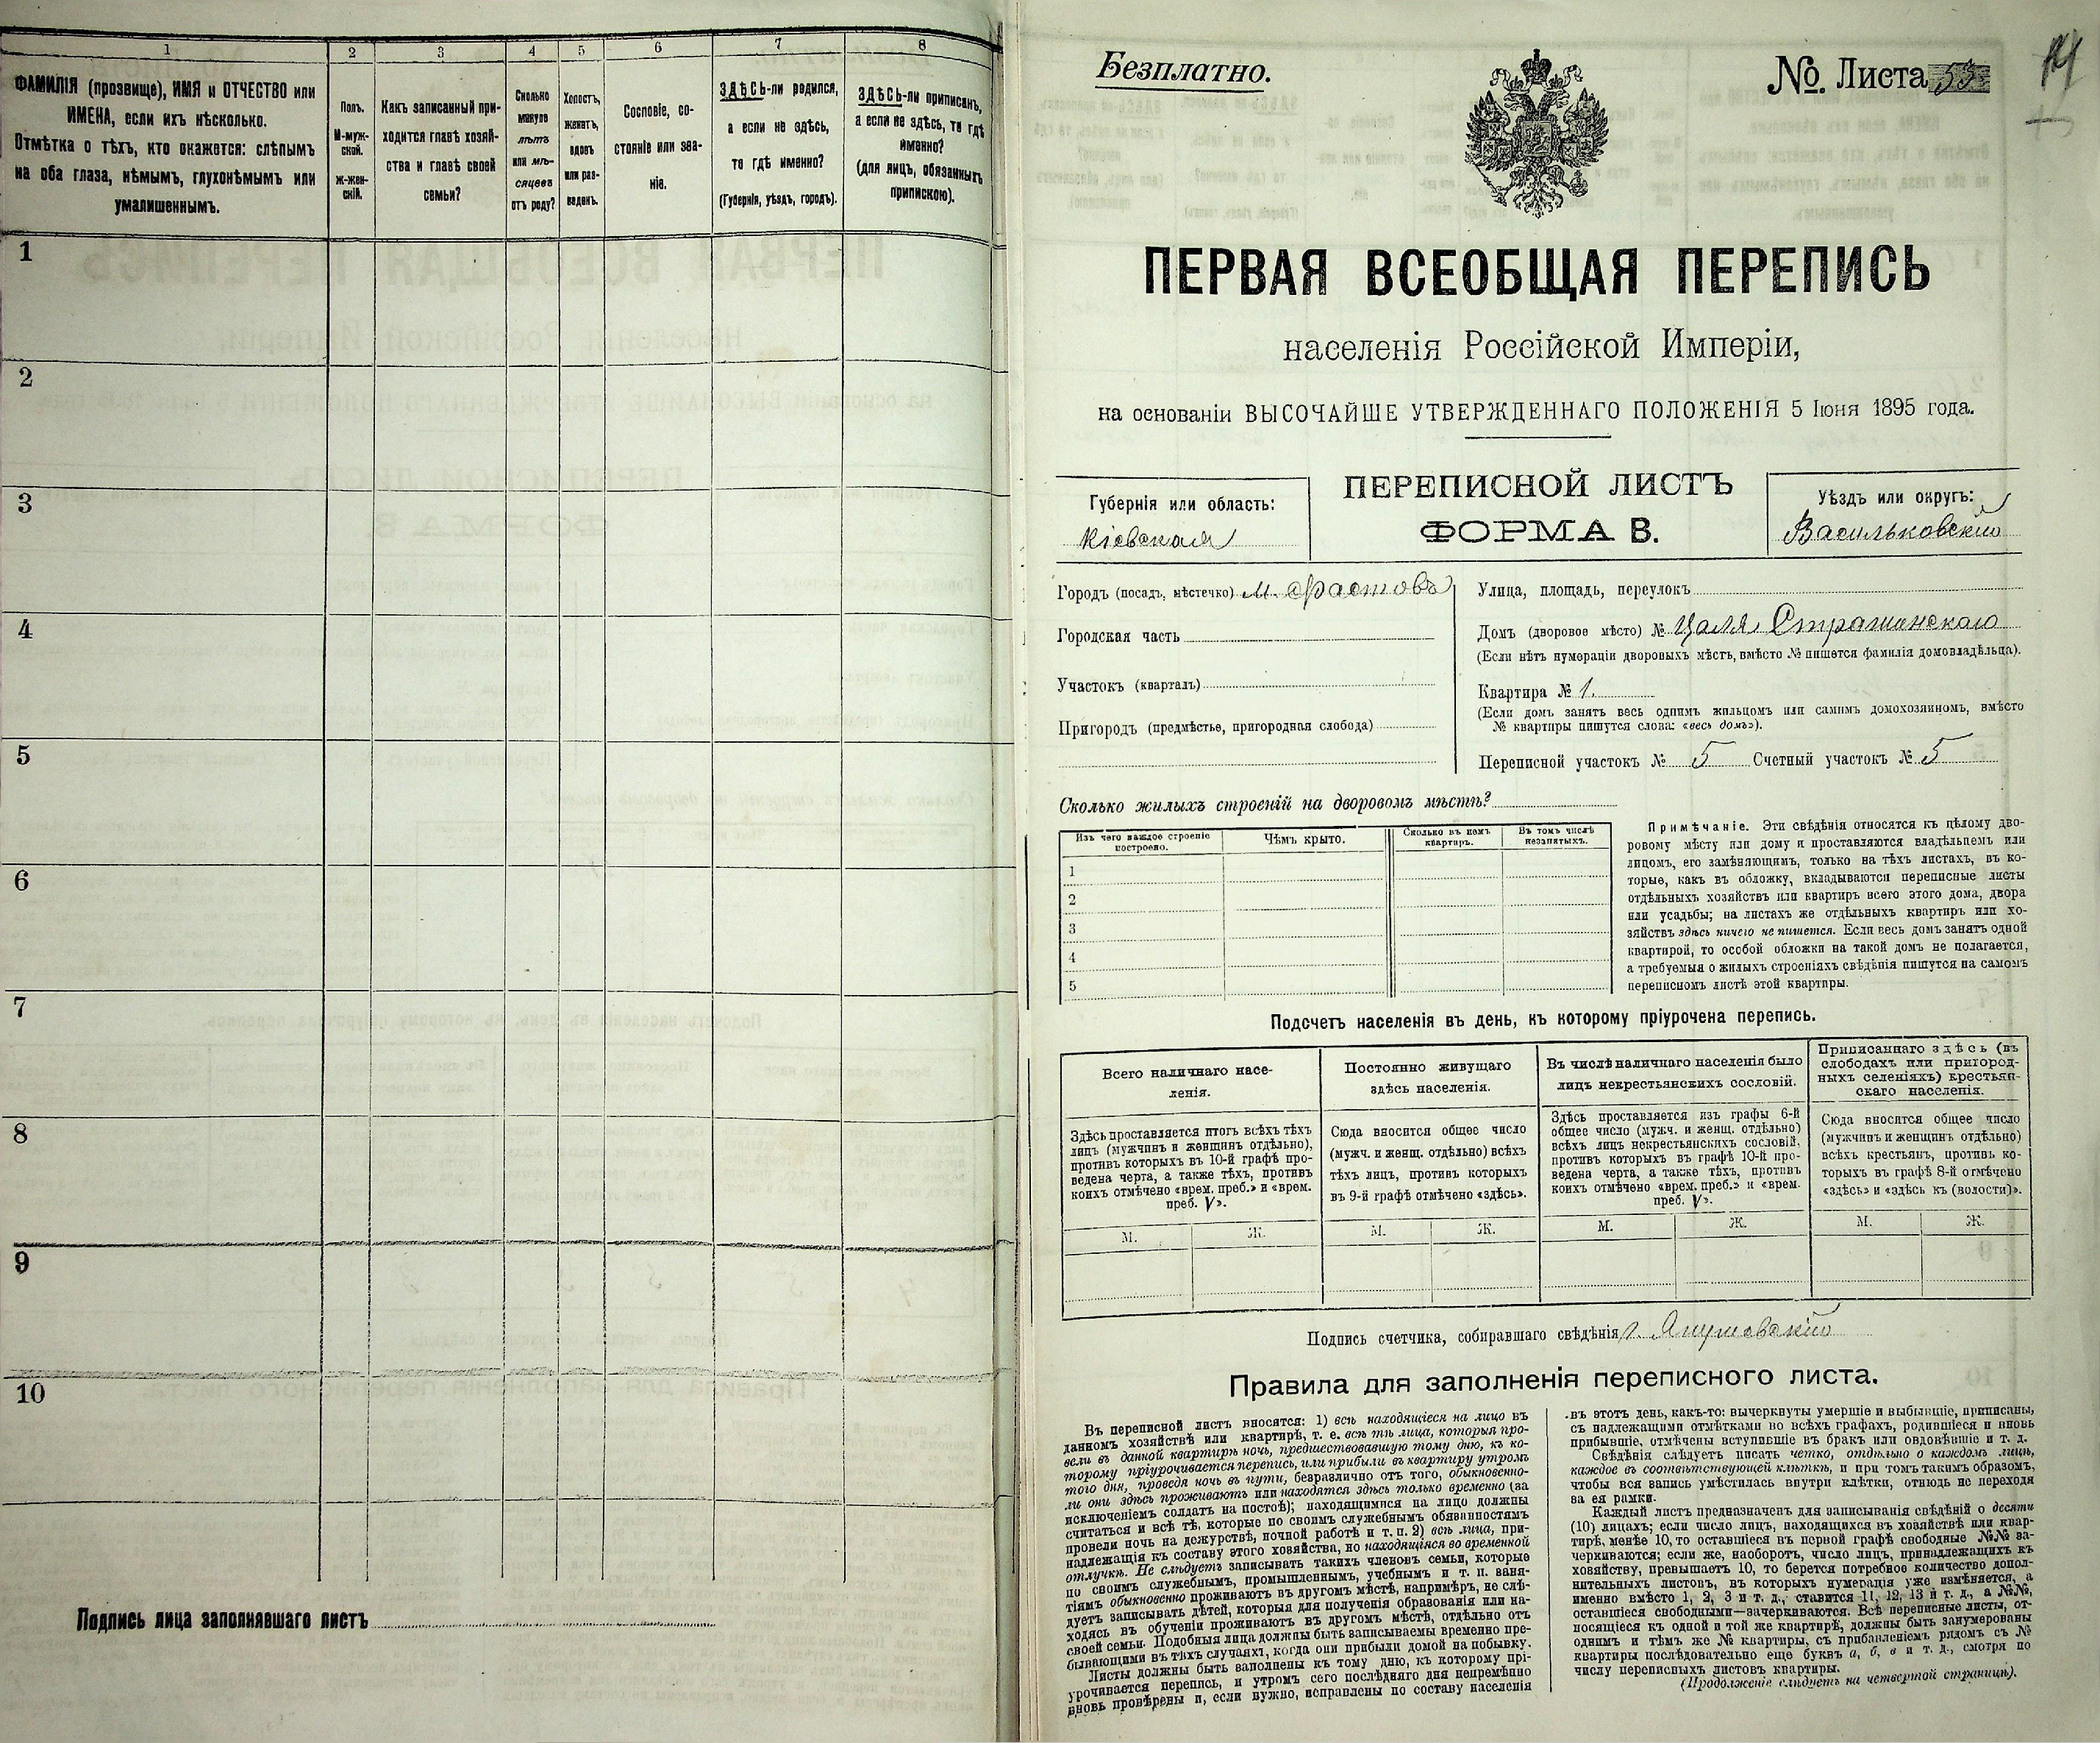 1 2 3 4 5 6 7 8
ФАМИЛІЯ (прозвище), ИМЯ и ОТЧЕСТВО или
ИМЕНА, если ихъ нѣсколько.
Отмѣтка о тѣхъ, кто окажется: слѣпымъ
на оба глаза, нѣмымъ, глухонѣмымъ или
умалишеннымъ.
Полъ.
М-муж-
ской.
Ж-жен-
скій.
Какъ записанный при-
ходится главѣ хозяй-
ства и главѣ своей
семьи?
Сколько
минуло
лѣтъ
или мѣ-
сяцевъ
отъ роду?
Холостъ,
женатъ,
вдовъ
или раз-
веденъ.
Сословіе, со-
стояніе или зва-
ніе.
ЗДѢСЬ-ли родился,
а если не здѣсь,
то гдѣ именно?
(Губернія, уѣздъ, городъ).
ЗДѢСЬ-ли приписанъ,
а если не здѣсь, то гдѣ
именно?
(для лицъ, обязанныхъ
припискою).
1
2
3
4
5
6
7
8
9
10
Подпись лица заполнявшаго листъ
Безплатно.
№. Листа 55
ПЕРВАЯ ВСЕОБЩАЯ ПЕРЕПИСЬ
населенія Россійской Имперіи,
на основаніи ВЫСОЧАЙШЕ УТВЕРЖДЕННАГО ПОЛОЖЕНІЯ 5 Іюня 1895 года.
Губернія или область:
Кіевская
ПЕРЕПИСНОЙ ЛИСТЪ
ФОРМА В.
Уѣздъ или округъ:
Васильковскій
Городъ (посадъ, мѣстечко) м. Фастовъ
Городская часть
Участокъ (кварталъ)
Пригородъ (предмѣстье, пригородная слобода)
Улица, площадь, переулокъ
Домъ (дворовое мѣсто) №
(Если нѣтъ нумераціи дворовыхъ мѣстъ, вмѣсто № пишется фамилія домовладѣльца).
Квартира № 1.
(Если домъ занятъ весь однимъ жильцомъ или самимъ домохозяиномъ, вмѣсто
№ квартиры пишутся слова: «весь домъ»).
Переписной участокъ № 5 Счетный участокъ № 5
Сколько жилыхъ строеній на дворовомъ мѣстѣ?
Изъ чего каждое строеніе
построено.
Чѣмъ крыто.
Сколько въ немъ
квартиръ.
Въ томъ числѣ
незанятыхъ.
1
2
3
4
5
Примѣчаніе. Эти свѣдѣнія относятся къ цѣлому дво-
ровому мѣсту или дому и проставляются владѣльцемъ или
лицомъ, его замѣняющимъ, только на тѣхъ листахъ, въ ко-
торые, какъ въ обложку, вкладываются переписные листы
отдѣльныхъ хозяйствъ или квартиръ всего этого дома, двора
или усадьбы; на листахъ же отдѣльныхъ квартиръ или хо-
зяйствъ здѣсь ничего не пишется. Если весь домъ занятъ одной
квартирой, то особой обложки на такой домъ не полагается,
а требуемыя о жилыхъ строеніяхъ свѣдѣнія пишутся на самомъ
переписномъ листѣ этой квартиры.
Подсчетъ населенія въ день, къ которому пріурочена перепись.
Всего наличнаго насе-
ленія.
Постоянно живущаго
здѣсь населенія.
Въ числѣ наличнаго населенія было
лицъ некрестьянскихъ сословій.
Приписаннаго здѣсь (въ
слободахъ или пригород-
ныхъ селеніяхъ) крестьян-
скаго населенія.
Здѣсь проставляется итогъ всѣхъ тѣхъ
лицъ (мужчинъ и женщинъ отдѣльно),
противъ которыхъ въ 10-й графѣ про-
ведена черта, а также тѣхъ, противъ
коихъ отмѣчено «врем. преб.» и «врем.
преб. V».
Сюда вносится общее число
(мужч. и женщ. отдѣльно) всѣхъ
тѣхъ лицъ, противъ которыхъ
въ 9-й графѣ отмѣчено «здѣсь».
Здѣсь проставляется изъ графы 6-й
общее число (мужч. и женщ. отдѣльно)
всѣхъ лицъ некрестьянскихъ сословій,
противъ которыхъ въ графѣ 10-й про-
ведена черта, а также тѣхъ, противъ
коихъ отмѣчено «врем. преб.» и «врем.
преб. V».
Сюда вносится общее число
(мужчинъ и женщинъ отдѣльно)
всѣхъ крестьянъ, противъ ко-
торыхъ въ графѣ 8-й отмѣчено
«здѣсь» и «здѣсь къ (волости)».
М. Ж. М. Ж. М. Ж. М. Ж.
Подпись счетчика, собиравшаго свѣдѣнія
Правила для заполненія переписного листа.
Въ переписной листъ вносятся: 1) всѣ находящіеся на лицо въ
данномъ хозяйствѣ или квартирѣ, т. е. всѣ тѣ лица, которыя про-
вели въ данной квартирѣ ночь, предшествовавшую тому дню, къ ко-
торому пріурочивается перепись, или прибыли въ квартиру утромъ
того дня, проведя ночь въ пути, безразлично отъ того, обыкновенно-
ли они здѣсь проживаютъ или находятся здѣсь только временно (за
исключеніемъ солдатъ на постоѣ); находящимися на лицо должны
считаться и всѣ тѣ, которые по своимъ служебнымъ обязанностямъ
провели ночь на дежурствѣ, ночной работѣ и т. п. 2) всѣ лица, при-
надлежащія къ составу этого хозяйства, но находящіяся во временной
отлучкѣ. Не слѣдуетъ записывать такихъ членовъ семьи, которые
по своимъ служебнымъ, промышленнымъ, учебнымъ и т. п. заня-
тіямъ обыкновенно проживаютъ въ другомъ мѣстѣ, напримѣръ, не слѣ-
дуетъ записывать дѣтей, которыя для полученія образованія или на-
ходясь въ обученіи проживаютъ въ другомъ мѣстѣ, отдѣльно отъ
своей семьи. Подобныя лица должны быть записываемы временно пре-
бывающими въ тѣхъ случаяхъ, когда они прибыли домой на побывку.
Листы должны быть заполнены къ тому дню, къ которому прі-
урочивается перепись, и утромъ сего послѣдняго дня непремѣнно
вновь провѣрены и, если нужно, исправлены по составу населенія
въ этотъ день, какъ-то: вычеркнуты умершіе и выбывшіе, приписаны,
съ надлежащими отмѣтками во всѣхъ графахъ, родившіеся и вновь
прибывшіе, отмѣчены вступившіе въ бракъ или овдовѣвшіе и т. д.
Свѣдѣнія слѣдуетъ писать четко, отдѣльно о каждомъ лицѣ,
каждое въ соотвѣтствующей клѣткѣ, и при томъ такимъ образомъ,
чтобы вся запись умѣстилась внутри клѣтки, отнюдь не переходя
за ея рамки.
Каждый листъ предназначенъ для записыванія свѣдѣній о десяти
(10) лицахъ; если число лицъ, находящихся въ хозяйствѣ или квар-
тирѣ, менѣе 10, то оставшіеся въ первой графѣ свободные №№ за-
черкиваются; если же, наоборотъ, число лицъ, принадлежащихъ къ
хозяйству, превышаетъ 10, то берется потребное количество допол-
нительныхъ листовъ, въ которыхъ нумерація уже измѣняется, а
именно вмѣсто 1, 2, 3 и т. д., ставится 11, 12, 13 и т. д., а №№,
оставшіеся свободными—зачеркиваются. Всѣ переписные листы, от-
носящіеся къ одной и той же квартирѣ, должны быть занумерованы
однимъ и тѣмъ же № квартиры, съ прибавленіемъ рядомъ съ №
квартиры послѣдовательно еще буквъ а, б, в и т. д., смотря по
числу переписныхъ листовъ квартиры.
(Продолженіе слѣдуетъ на четвертой страницѣ).